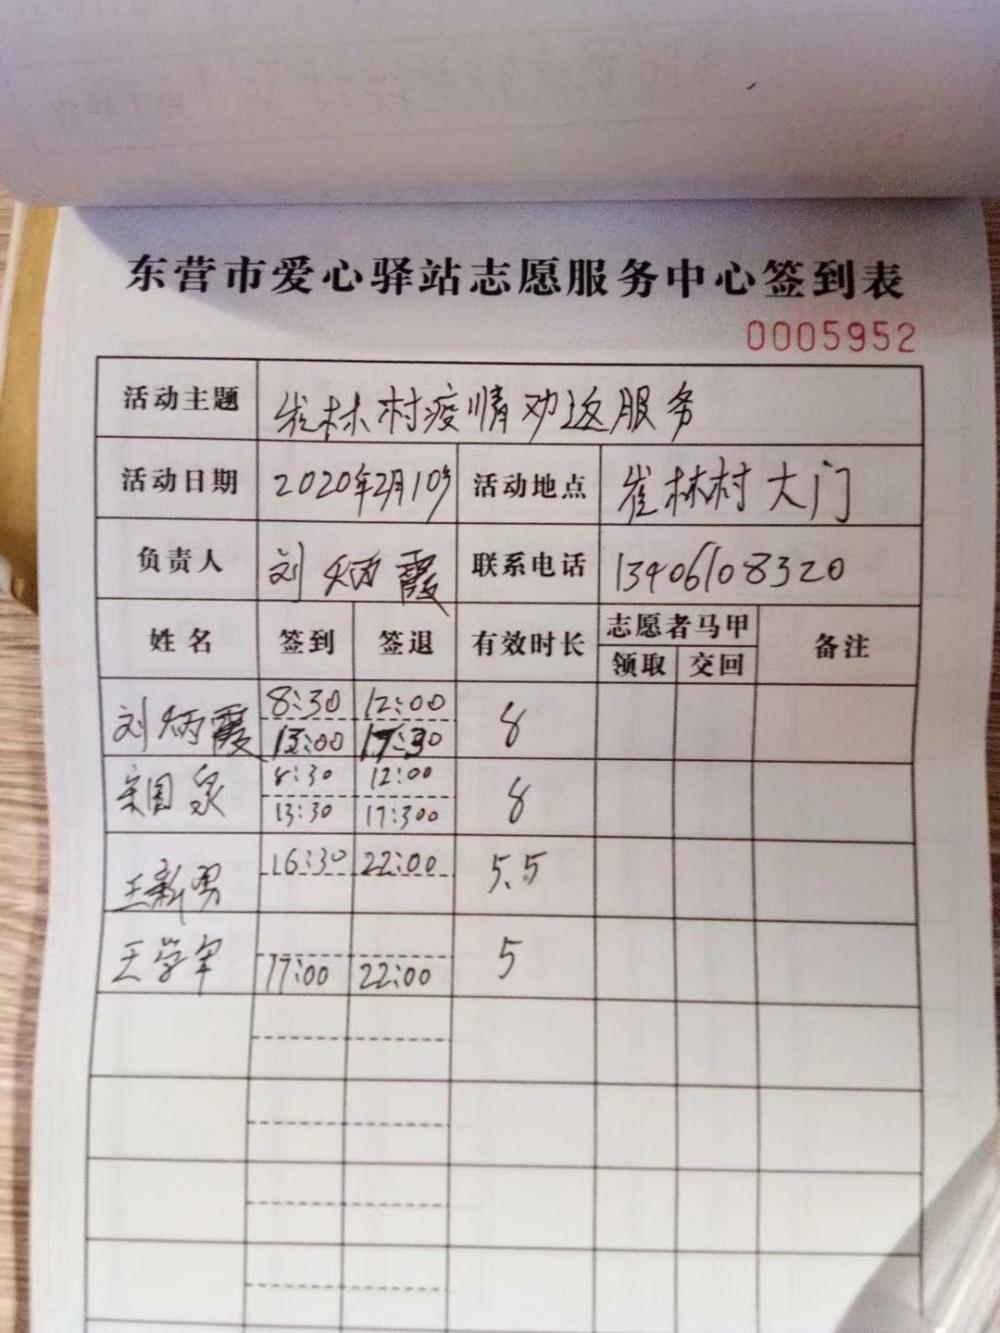 东营市爱心驿站志愿服务中心签到表
0005952
活动主题 崔林村疫情劝返服务
活动日期 2020年2月10号 活动地点 崔林村大门
负责人 刘炳霞 联系电话 13406108320
姓名 签到 签退 有效时长 志愿者马甲 备注
领取 交回
刘炳霞 8:30 12:00 8
13:00 17:30
宋国泉 8:30 12:00 8
13:30 17:300
王新勇 16:30 22:00 5.5
王学军 17:00 22:00 5